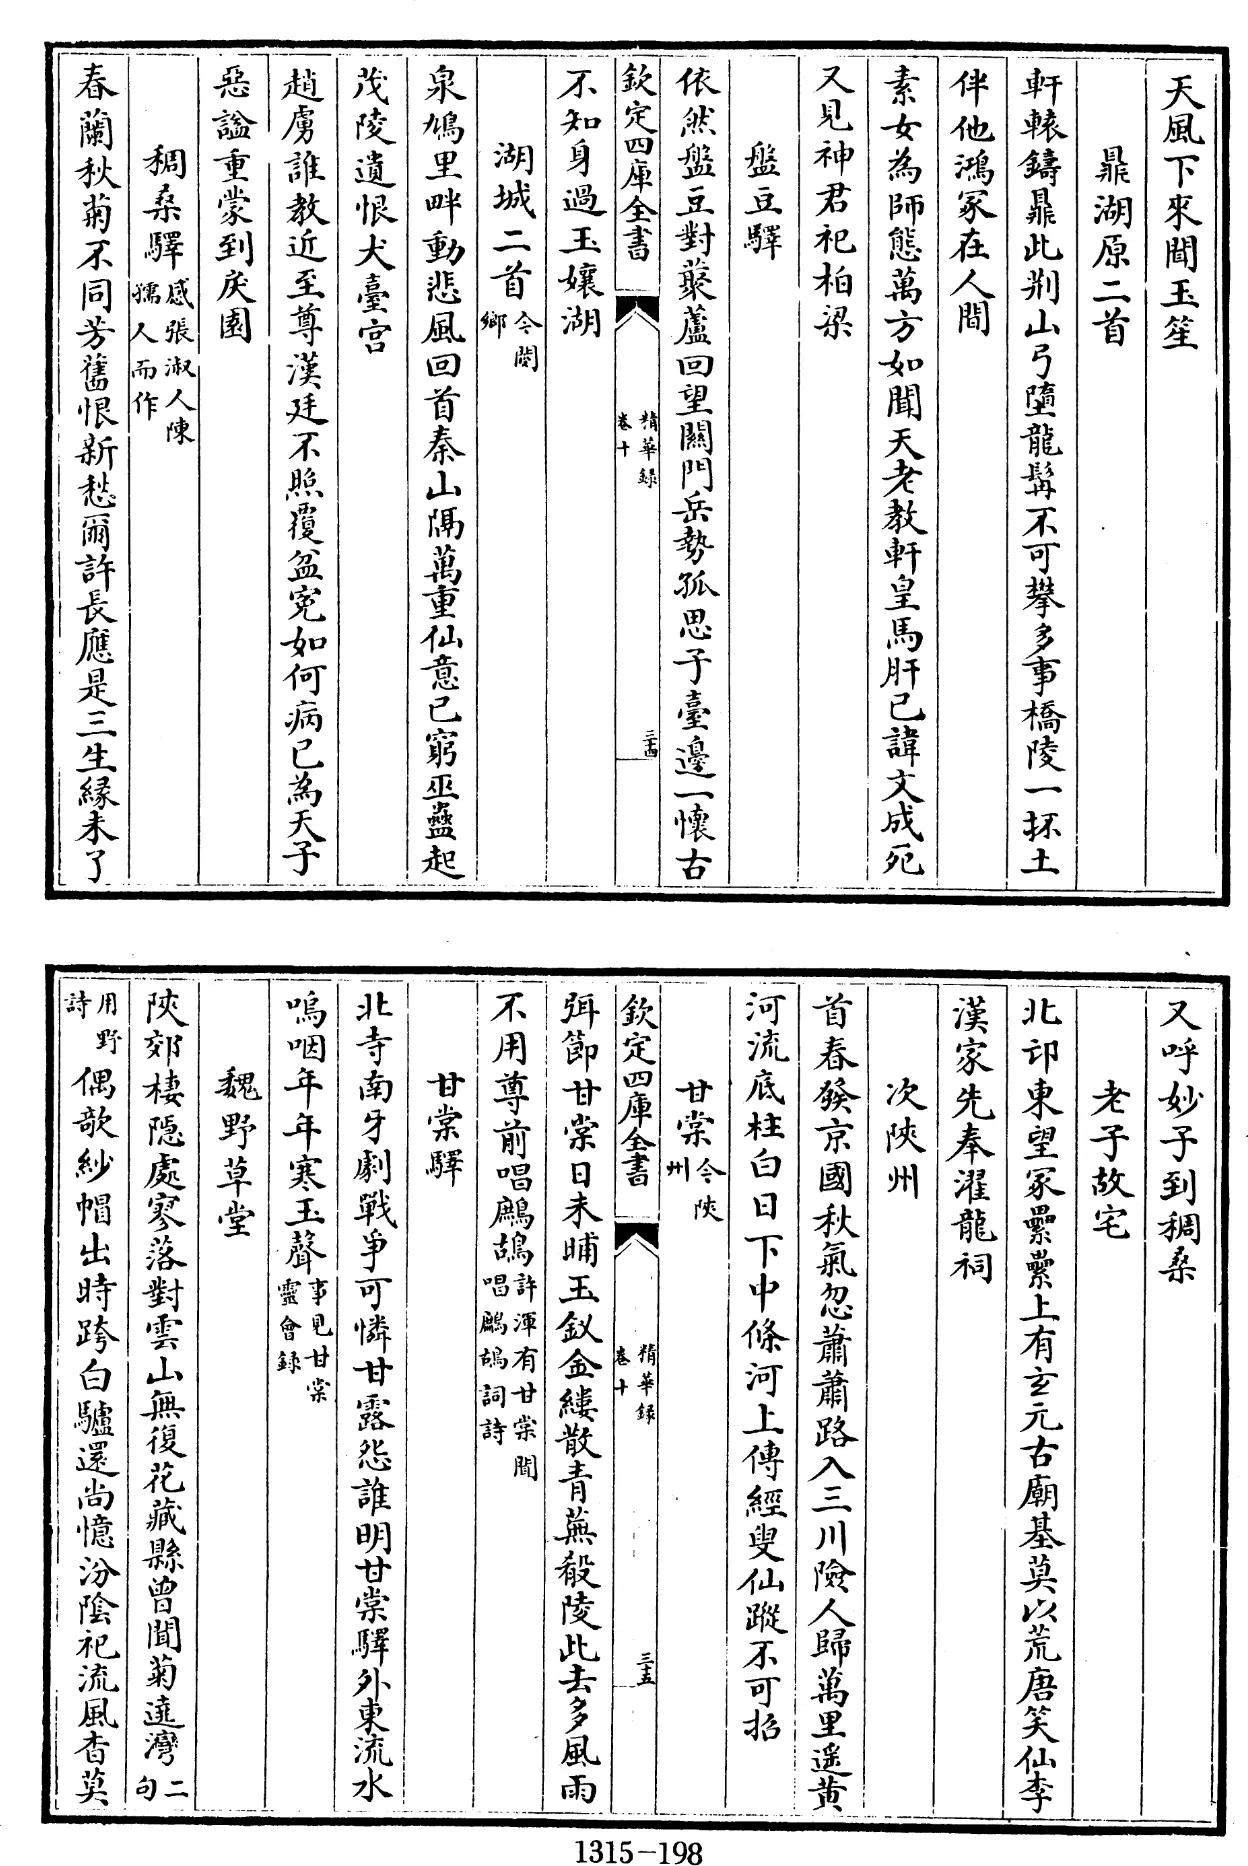 天風下來聞玉笙
鼎湖原二首
軒轅鑄鼎此荆山弓墮龍髯不可攀多事橋陵一抔土
伴他鴻冢在人間
素女為師態萬方如聞天老教軒皇馬肝已諱文成死
又見神君祀柏梁
盤豆驛
依然盤豆對叢蘆回望關門岳勢孤思子臺邊一懷古
欽定四庫全書
精華録
卷十
三十四
不知身過玉孃湖
湖城二首今閿
鄉
泉鳩里畔動悲風回首秦山隔萬重仙意已窮巫蠱起
茂陵遺恨犬臺宫
趙虜誰教近至尊漢廷不照覆盆寃如何病已為天子
惡謚重蒙到戾園
稠桑驛感張淑人陳
孺人而作
春蘭秋菊不同芳舊恨新愁爾許長應是三生縁未了
又呼妙子到稠桑
老子故宅
北邙東望冢纍纍上有玄元古廟基莫以荒唐笑仙李
漢家先奉濯龍祠
次陜州
首春發京國秋氣忽蕭蕭路入三川險人歸萬里遥黄
河流底柱白日下中條河上傳經叟仙蹤不可招
甘棠今陜
州
欽定四庫全書
精華録
卷十
三十五
弭節甘棠日未晡玉釵金縷散青蕪殽陵此去多風雨
不用尊前唱鷓鴣許渾有甘棠聞
唱鷓鴣詞詩
甘棠驛
北寺南牙劇戰爭可憐甘露怨誰明甘棠驛外東流水
嗚咽年年寒玉聲事見甘棠
靈會録
魏野草堂
陜郊棲隱處寥落對雲山無復花藏縣曾聞菊遶灣二句
用野
詩偶欹紗帽出時跨白驢還尚憶汾陰祀流風杳莫
1315-198